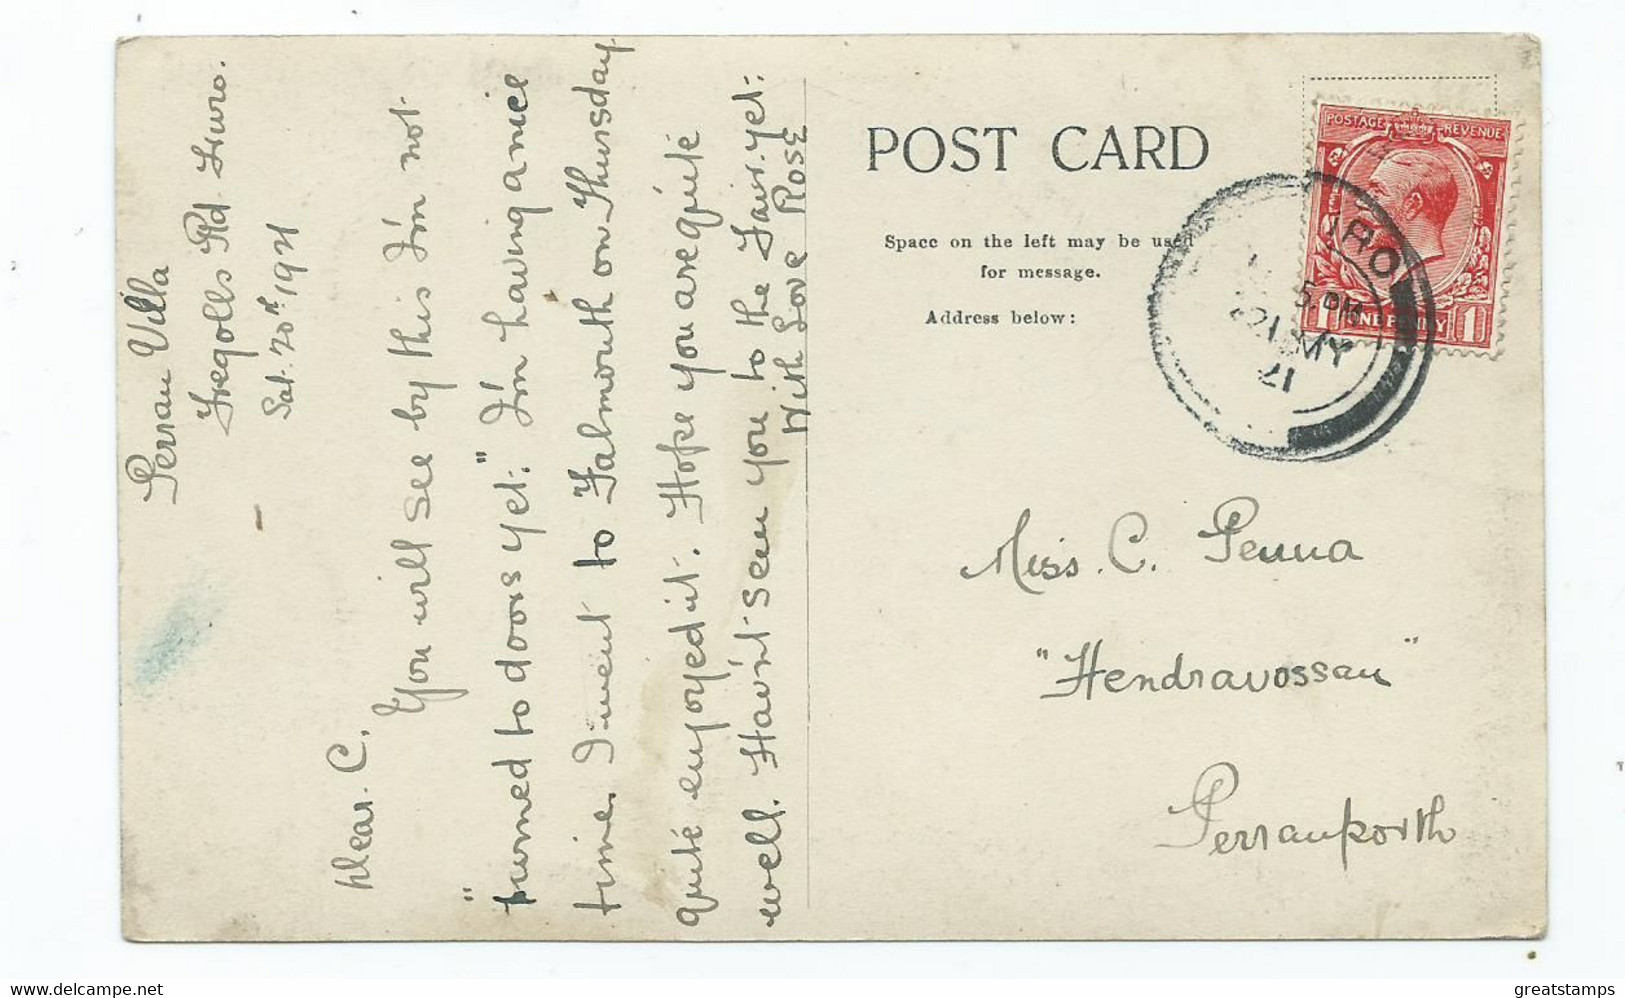 Perran Villa
Tregolls Rd. Truro.
Sat. 20th 1921
Dear C.
You will see by this I'm not
"turned to doors yet." I'm having a nice
time. I went to Falmouth on Thursday
quite enjoyed it. Hope you are quite
well. Hav'nt seen you to the Fair yet.
With Love Rose
POST CARD
Space on the left may be used
for message.
Address below:
POSTAGE REVENUE
1 ONE PENNY 1
5. PM
21 MY
21
Miss. C. Penna
"Hendravossan"
Perranporth
delcampe.net
greatstamps